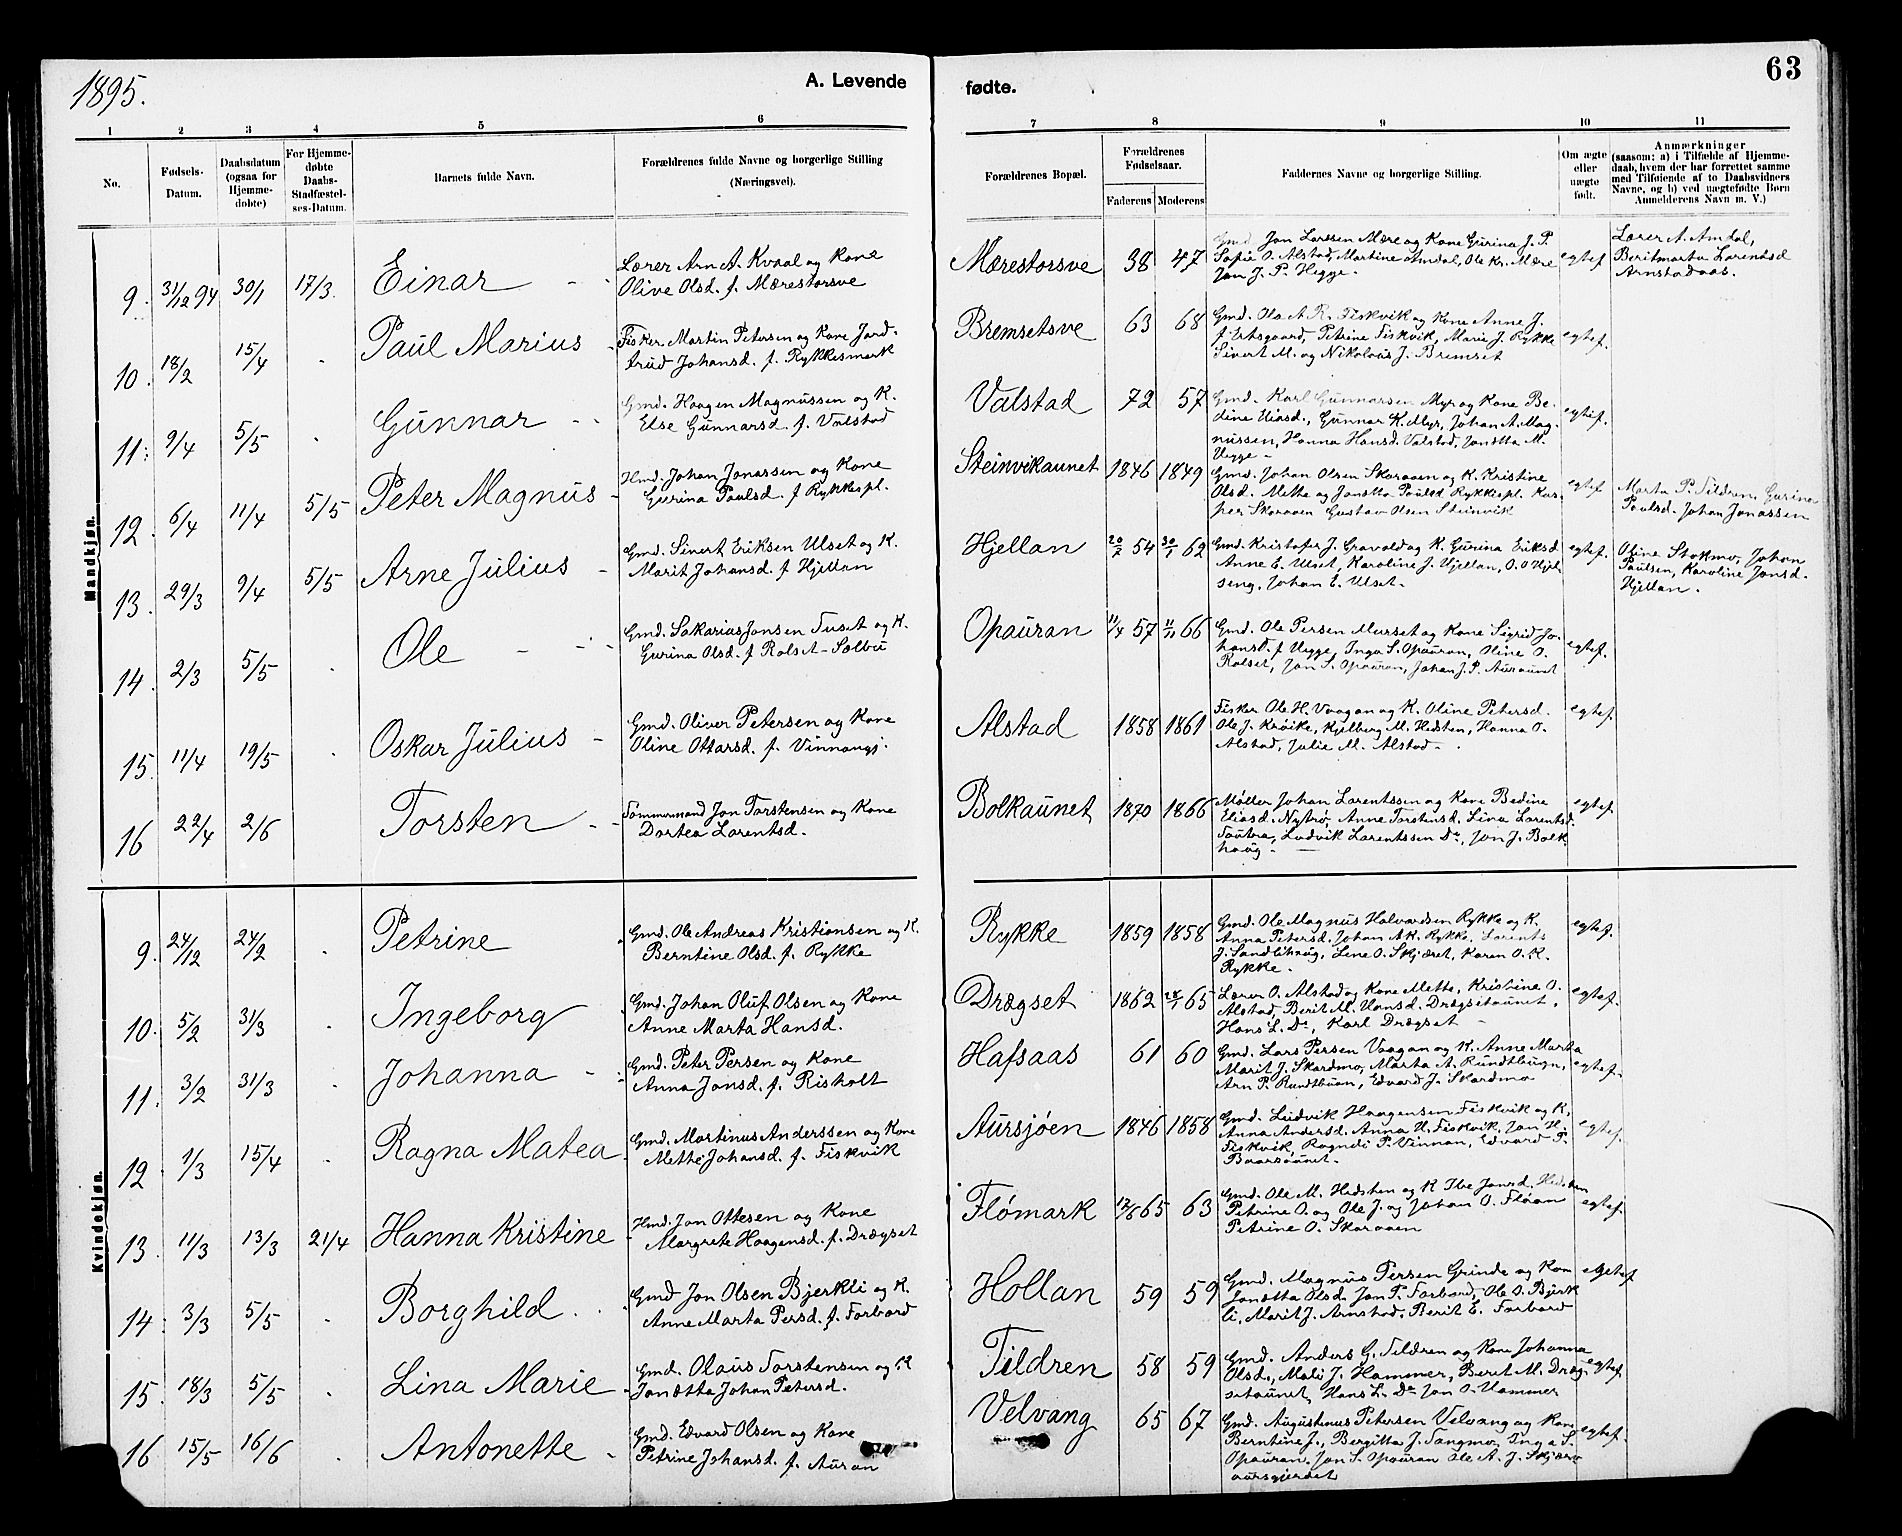 1895.
A. Levende
fødte.
63
1 2 3 4 5 6 7 8 9 10 11
No.
Fødsels-
Datum.
Daabsdatum
(ogsaa for
Hjemme-
døbte)
For Hjemme-
døbte
Daabs-
Stadfæstel-
ses-Datum.
Barnets fulde Navn.
Forældrenes fulde Navne og borgerlige Stilling
(Næringsvei).
Forældrenes Bopæl.
Forældrenes
Fødselsaar.
Faderens Moderens
Faddernes Navne og borgerlige Stilling.
Om ægte
eller
uægte
født.
Anmærkninger
(saasom: a) i Tilfælde af Hjemme-
daab, hvem der har forrettet samme
med Tilføiende af to Daabsvidners
Navne, og b) ved uægtefødte Børn
Anmelderens Navn m. V.)
Mandkjøn.
9. 31/12 94 30/1 17/3. Einar
Lærer Arn A. Kvaal og Kone
Olive Olsd. f. Mærestorsve
Mærestorsve 38 47
Gmd. Jon Larssen Mære og Kone Gurina J. P.
Sofie O. Alstad, Martine Amdal, Ole Kr. Mære
Jon J. P. Hegge.
egtef.
Lærer A. Amdal,
Beritmarta Larendsd
Arnstadaas.
10. 18/2 15/4 Paul Marius
Fisker Martin Petersen og Kone Jard-
trud Johansd. f. Rykkesmark
Bremsetsve 63 68
Gmd. Ole A. R. Fiskvik og Kone Anne J.
f. Ertsgaard, Petrine Fiskvik, Marie J. Rykke
Sivert M. og Nikolaus J. Bremset
egtef.
11. 9/4 5/5 Gunnar
Gmd. Haagen Magnussen og K.
Else Gunnarsd. f. Valstad
Valstad 72 57
Gmd. Karl Gunnarsen Myr og Kone Be-
dine Eliasd., Gunnar K. Myr, Johan A. Mag-
nussen, Hanna Hansd. Valstad, Jonetta M.
Hegge
egtef.
12. 6/4 11/4 5/5 Peter Magnus
Hmd. Johan Jonassen og Kone
Gurina Paulsd. f Rykkespl.
Steinvikaunet 1846 1849
Gmd. Johan Olsen Skaraaen og K. Kristine
Olsd. Mette og Jonetta Paulsd Rykkespl. Kas-
per Skaraaen Gustav Olsen Steinvik
egtef
Marta P. Tildren, Gurina
Paulsd. Johan Jonassen
13. 29/3 9/4 5/5 Arne Julius
Gmd. Sivert Eriksen Ulset og K.
Marit Johansd. f Hjellan
Hjellan 20/2 54 30/1 62
Gmd. Kristofer J. Gravald og K. Gurina Eriksd
Anne E. Ulset, Karoline J. Hjellan, O. O Hjel-
seng, Johan E. Ulset.
egtef.
Oline Stokmo, Johan
Paulsen, Karoline Jonsd.
Hjellan.
14. 2/3 5/5 Ole
Gmd. Sakarias Jonsen Tuset og K.
Gurina Olsd. f Rolset - Selbu
Opauran 11/4 57 11/11 66
Gmd. Ole Persen Murset og Kone Sigrid Jo-
hansd. f Hegge, Inga S. Opauran, Oline O.
Rolset, Jon S. Opauran, Johan J. P. Auraunet
egtef.
15. 11/4 19/5 Oskar Julius
Gmd. Oliver Petersen og Kone
Oline Ottarsd. f. Vinnangj.
Alstad 1858 1861
Fisker Ole H. Vaagan og K. Oline Petersd.
Ole J. Krøike, Kjelberg M. Hedsten, Hanna O.
Alstad, Julie M. Alstad
egtef.
16 22/4 2/6 Torsten
Tømmermand Jon Torstensen og Kone
Dortea Larentsd.
Bolkaunet 1870 1866
Møller Johan Larentssen og Kone Bedine
Eliasd. Nytrø, Anne Torstensd. Lina Larentsd.
Tautra, Ludvik Larentssen Do, Jon J. Bolk-
haug
egtef.
Kvindekjøn.
9. 24/12 24/2 Petrine
Gmd. Ole Andreas Kristiansen og K.
Berntine Olsd. f. Rykke
Rykke 1859 1858
Gmd. Ole Magnus Halvardsen Rykke og K.
Anna Petersd. Johan A K. Rykke, Larents
J. Sandlihaug, Lene O. Skjæret, Karen O. K.
Rykke.
egtef.
10. 5/2 31/3 Ingeborg
Gmd. Johan Oluf Olsen og Kone
Anne Marta Hansd.
Drægset 1862 28/1 65
Lærer O. Alstad og Kone Mette, Kristine O.
Alstad, Berit M. Hansd. Drægsetaunet,
Hans L. Do, Karl Drægset
egtef.
11. 3/2 31/3 Johanna
Gmd. Peter Persen og Kone
Anna Jonsd. f. Risholt
Hafsaas 61 60
Gmd. Lars Persen Vaagan og K. Anne Marta
Marit J. Skardmo, Marta A. Rundtbugn,
Arn P. Rundtbuan, Edvard J. Skardmo
egtef.
12 1/3 15/4 Ragna Matea
Gmd. Martinus Anderssen og Kone
Mette Johansd. f. Fiskvik
Aursjøen 1846 1858
Gmd. Ludvik Haagensen Fiskvik og K.
Anna Andersd. Anna H. Fiskvik, Jon H.
Fiskvik, Ragndi P. Vinnan, Edvard P.
egtef.
13. 11/3 13/3 21/4 Hanna Kristine
Hmd. Jon Ottesen og Kone
Margrete Haagensd. f. Drægset
Flómark 12/6 65 63
Gmd. Ole M. Hedsten og K Ibe Jonsd. Hedsten
Petrine O. og Ole J. og Johan O. Flóan
Petrine O. Skaraaen
egtef.
14. 3/3 5/5 Borghild
Gmd Jon Olsen Bjerkli og K.
Anne Marta Persd. f. Forbord
Hollan 59 59
Gmd. Magnus Persen Grinde og Kone
Jonetta Olsd. Jon P. Forbord, Ole O. Bjerk-
li, Marit J. Arnstad, Berit E. Forbord
egtef
15. 18/3 5/5 Lina Marie
Gmd. Olaus Torstensen og K
Jonetta Johan Petersd.
Tildren 58 59
Gmd. Anders G. Tildren og Kone Johanna
Olsd., Mali J. Hammer, Beret M. Dræg-
setaunet, Hans L. Do Jon O. Hammer
egtef
16 15/5 16/6 Antonette
Gmd. Edvard Olsen og Kone
Petrine Johansd. f. Auran
Velvang 65 67
Gmd. Augustinus Petersen Velvang og Kone
Berntine J., Bergitta J. Tangmo, Inga S.
Opauran, Jon S. Opauran Ole A. J. Skjære
aursgjerdet
egtef.